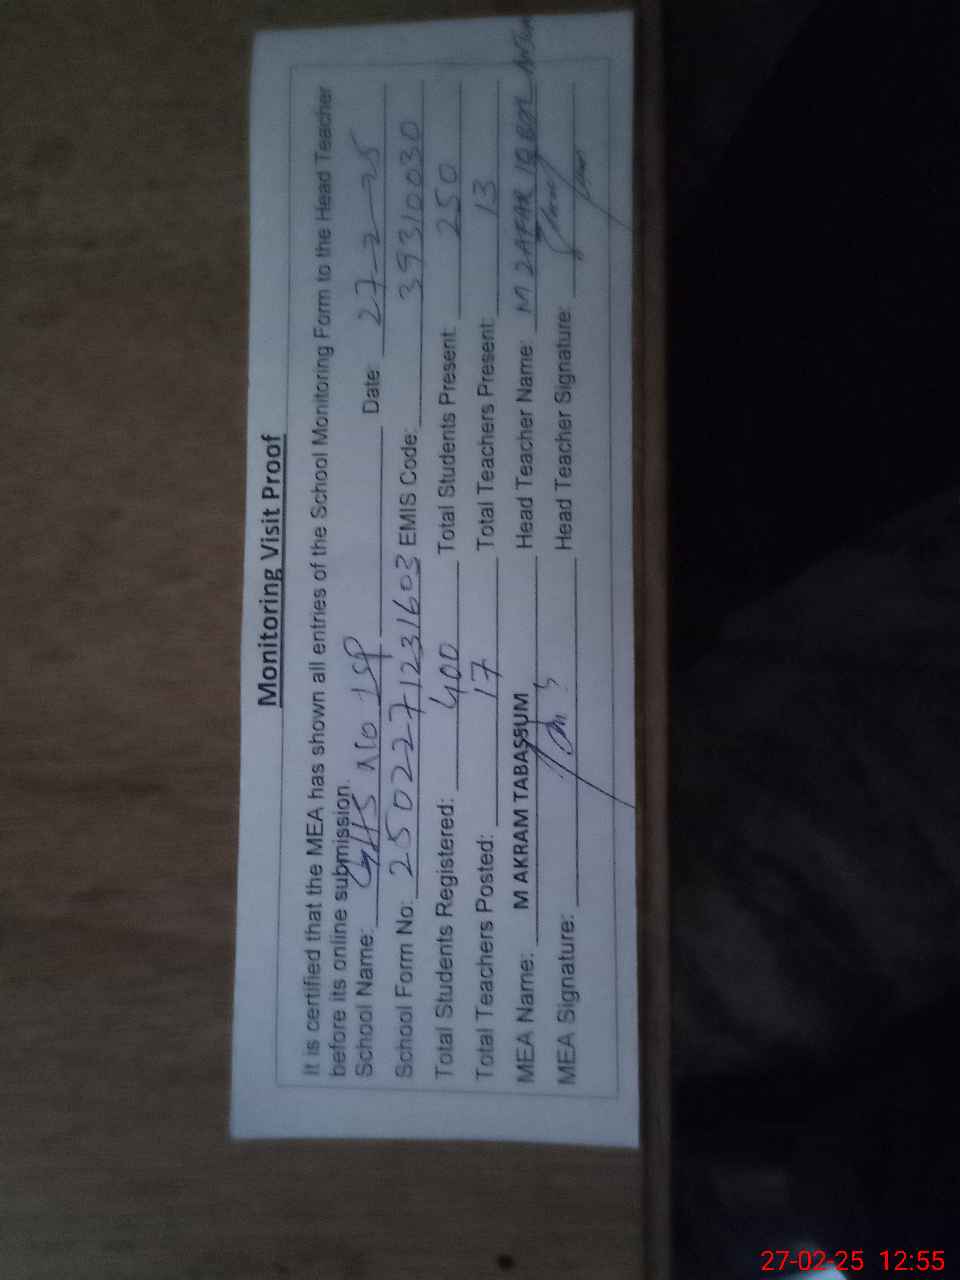 Monitoring Visit Proof
It is certified that the MEA has shown all entries of the School Monitoring Form to the Head Teacher
before its online submission.
School Name: GHS No 1 SP Date: 27-2-25
School Form No: 2502271231603 EMIS Code: 39310030
Total Students Registered: 400 Total Students Present: 250
Total Teachers Posted: 17 Total Teachers Present: 13
MEA Name: M AKRAM TABASSUM Head Teacher Name: M ZAFAR IQBAL
MEA Signature: Head Teacher Signature:
27-02-25 12:55